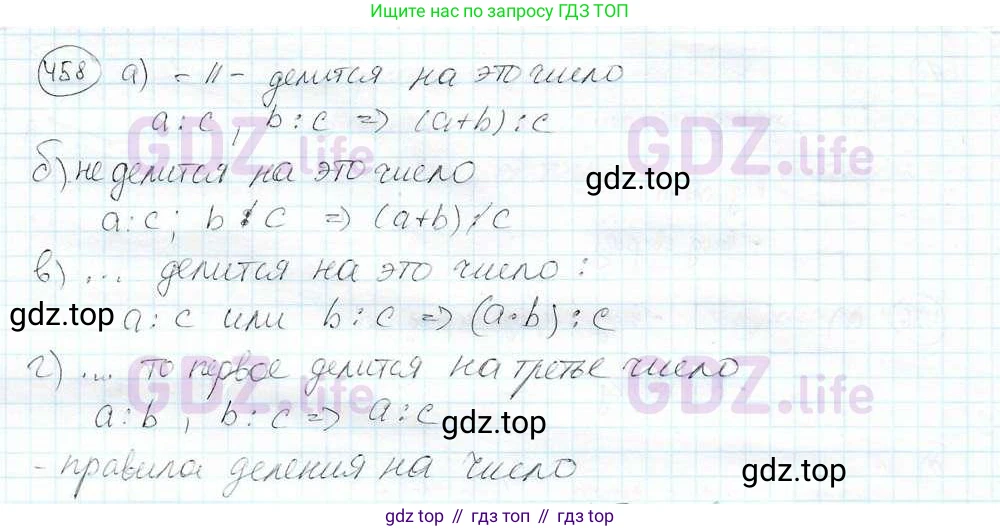 Ищите ответы по запросу ГДЗ ТОП
458 а) -〃- делится на это число
a⋮c, b⋮c => (a+b)⋮c
GDZ.life GDZ.life
б) не делится на это число
gdz.top
a⋮c; b⋮̸c => (a+b)⋮̸c
в) ... делится на это число:
gdz.top
a⋮c или b⋮c => (a·b)⋮c
г) ... то первое делится на третье число.
GDZ.life GDZ.life
a⋮b, b⋮c => a⋮c
gdz.top
- правила деления на число
gdz.top
gdz top // гдз топ // gdz top